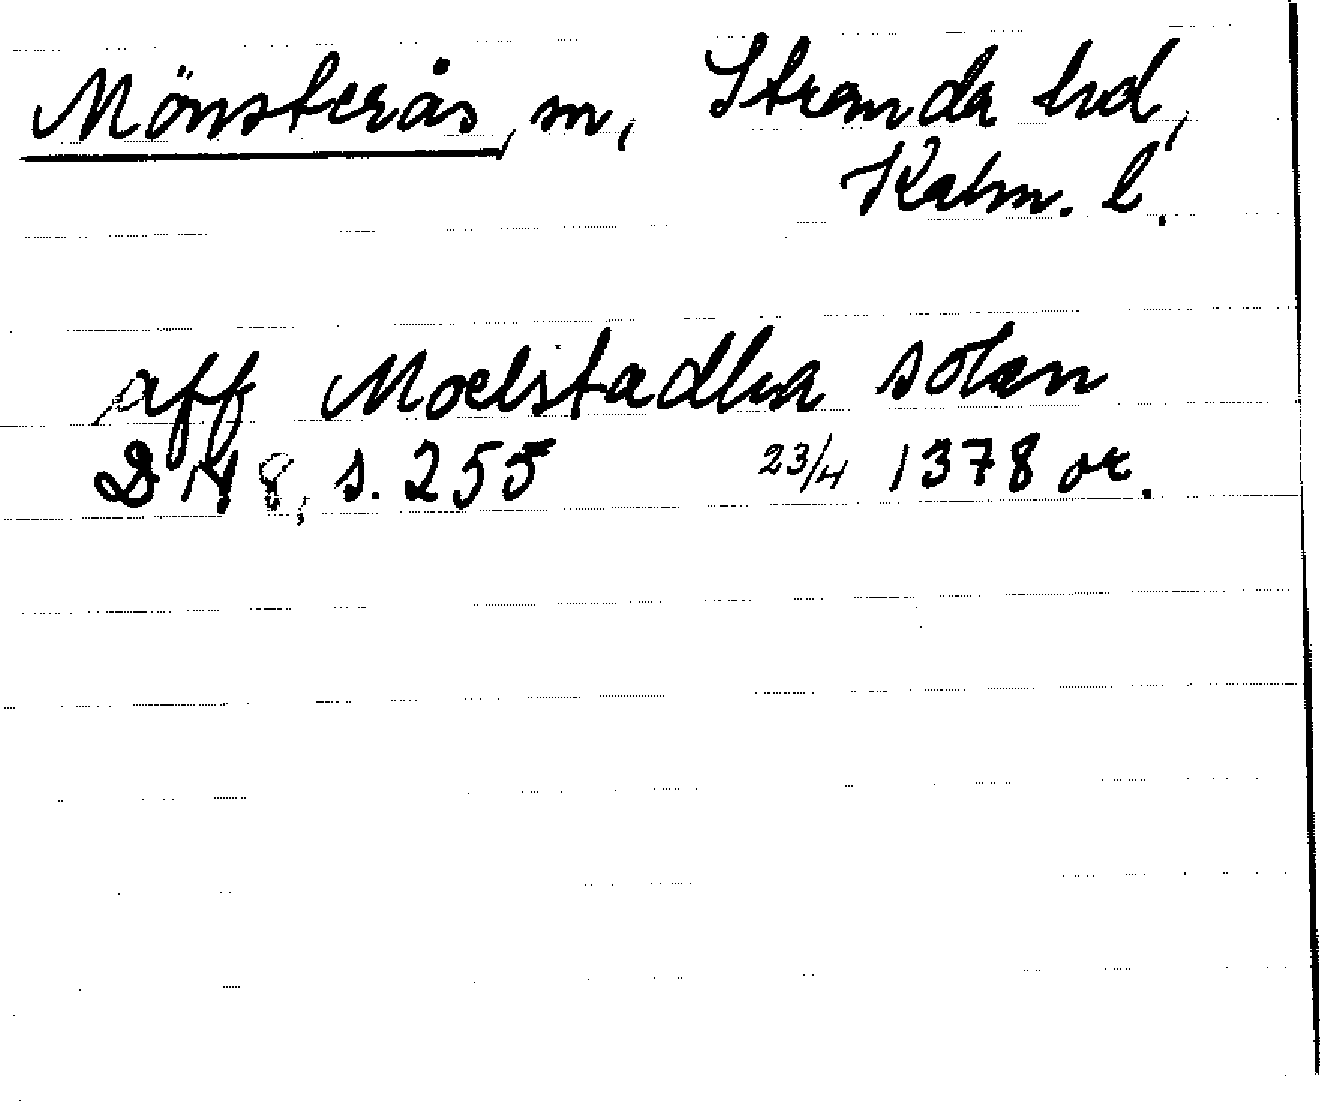 Mönsterås, m, Stranda hd,
Kalm. l.
aff Moelstadha sokn
D 14 8, s. 255 23/4 1378 or.